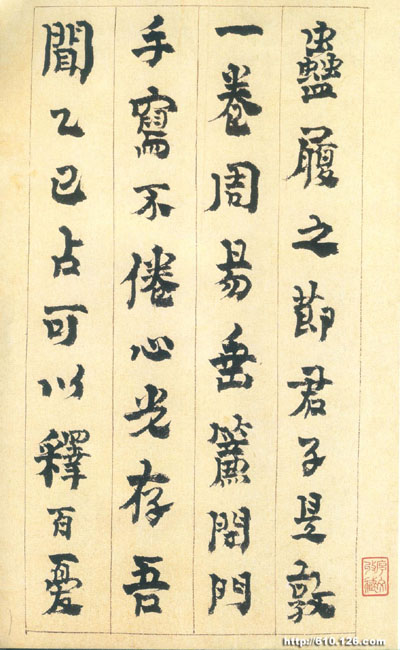 蠱履之節君子是敦
一卷周易垂簾閉門
手寫不倦心光存吾
聞乙巳占可以釋百憂
http://610.126.com